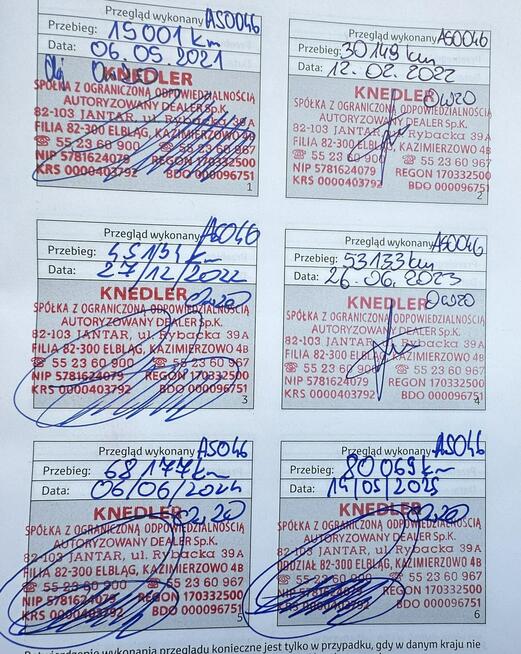 Przegląd wykonany ASO046
Przebieg: 15 001 km
Data: 06.05.2021
Olej 0w20
KNEDLER
SPÓŁKA Z OGRANICZONĄ ODPOWIEDZIALNOŚCIĄ
AUTORYZOWANY DEALER Sp.K.
82-103 JANTAR, ul. Rybacka 39A
FILIA 82-300 ELBLĄG, KAZIMIERZOWO 4B
☎ 55 23 60 900 ☎ 55 23 60 967
NIP 5781624079 REGON 170332500
KRS 0000403792 BDO 000096751
1
Przegląd wykonany ASO046
Przebieg: 30 149 km
Data: 12.02.2022
KNEDLER 0w20
SPÓŁKA Z OGRANICZONĄ ODPOWIEDZIALNOŚCIĄ
AUTORYZOWANY DEALER Sp.K.
82-103 JANTAR, ul. Rybacka 39A
FILIA 82-300 ELBLĄG, KAZIMIERZOWO 4B
☎ 55 23 60 900 ☎ 55 23 60 967
NIP 5781624079 REGON 170332500
KRS 0000403792 BDO 000096751
2
Przegląd wykonany ASO046
Przebieg: km
Data: 27/12/2022
KNEDLER 0w20
SPÓŁKA Z OGRANICZONĄ ODPOWIEDZIALNOŚCIĄ
AUTORYZOWANY DEALER Sp.K.
82-103 JANTAR, ul. Rybacka 39A
FILIA 82-300 ELBLĄG, KAZIMIERZOWO 4B
☎ 55 23 60 900 ☎ 55 23 60 967
NIP 5781624079 REGON 170332500
KRS 0000403792 BDO 000096751
3
Przegląd wykonany ASO046
Przebieg: 53133 km
Data: 26.06.2023
KNEDLER 0w20
SPÓŁKA Z OGRANICZONĄ ODPOWIEDZIALNOŚCIĄ
AUTORYZOWANY DEALER Sp.K.
82-103 JANTAR, ul. Rybacka 39A
FILIA 82-300 ELBLĄG, KAZIMIERZOWO 4B
☎ 55 23 60 900 ☎ 55 23 60 967
NIP 5781624079 REGON 170332500
KRS 0000403792 BDO 000096751
4
Przegląd wykonany ASO46
Przebieg: 68 177 km
Data: 06/06/2024
KNEDLER 0w20
SPÓŁKA Z OGRANICZONĄ ODPOWIEDZIALNOŚCIĄ
AUTORYZOWANY DEALER Sp.K.
82-103 JANTAR, ul. Rybacka 39A
FILIA 82-300 ELBLĄG, KAZIMIERZOWO 4B
☎ 55 23 60 900 ☎ 55 23 60 967
NIP 5781624079 REGON 170332500
KRS 0000403792 BDO 000096751
5
Przegląd wykonany ASO46
Przebieg: 80 069 km
Data: 14/05/2025
KNEDLER 0w20
SPÓŁKA Z OGRANICZONĄ ODPOWIEDZIALNOŚCIĄ
AUTORYZOWANY DEALER Sp.K.
82-103 JANTAR, ul. Rybacka 39A
ODDZIAŁ 82-300 ELBLĄG, KAZIMIERZOWO 4B
☎ 55 23 60 900 ☎ 55 23 60 967
NIP 5781624079 REGON 170332500
KRS 0000403792 BDO 000096751
6
wykonania przeglądu konieczne jest tylko w przypadku, gdy w danym kraju nie